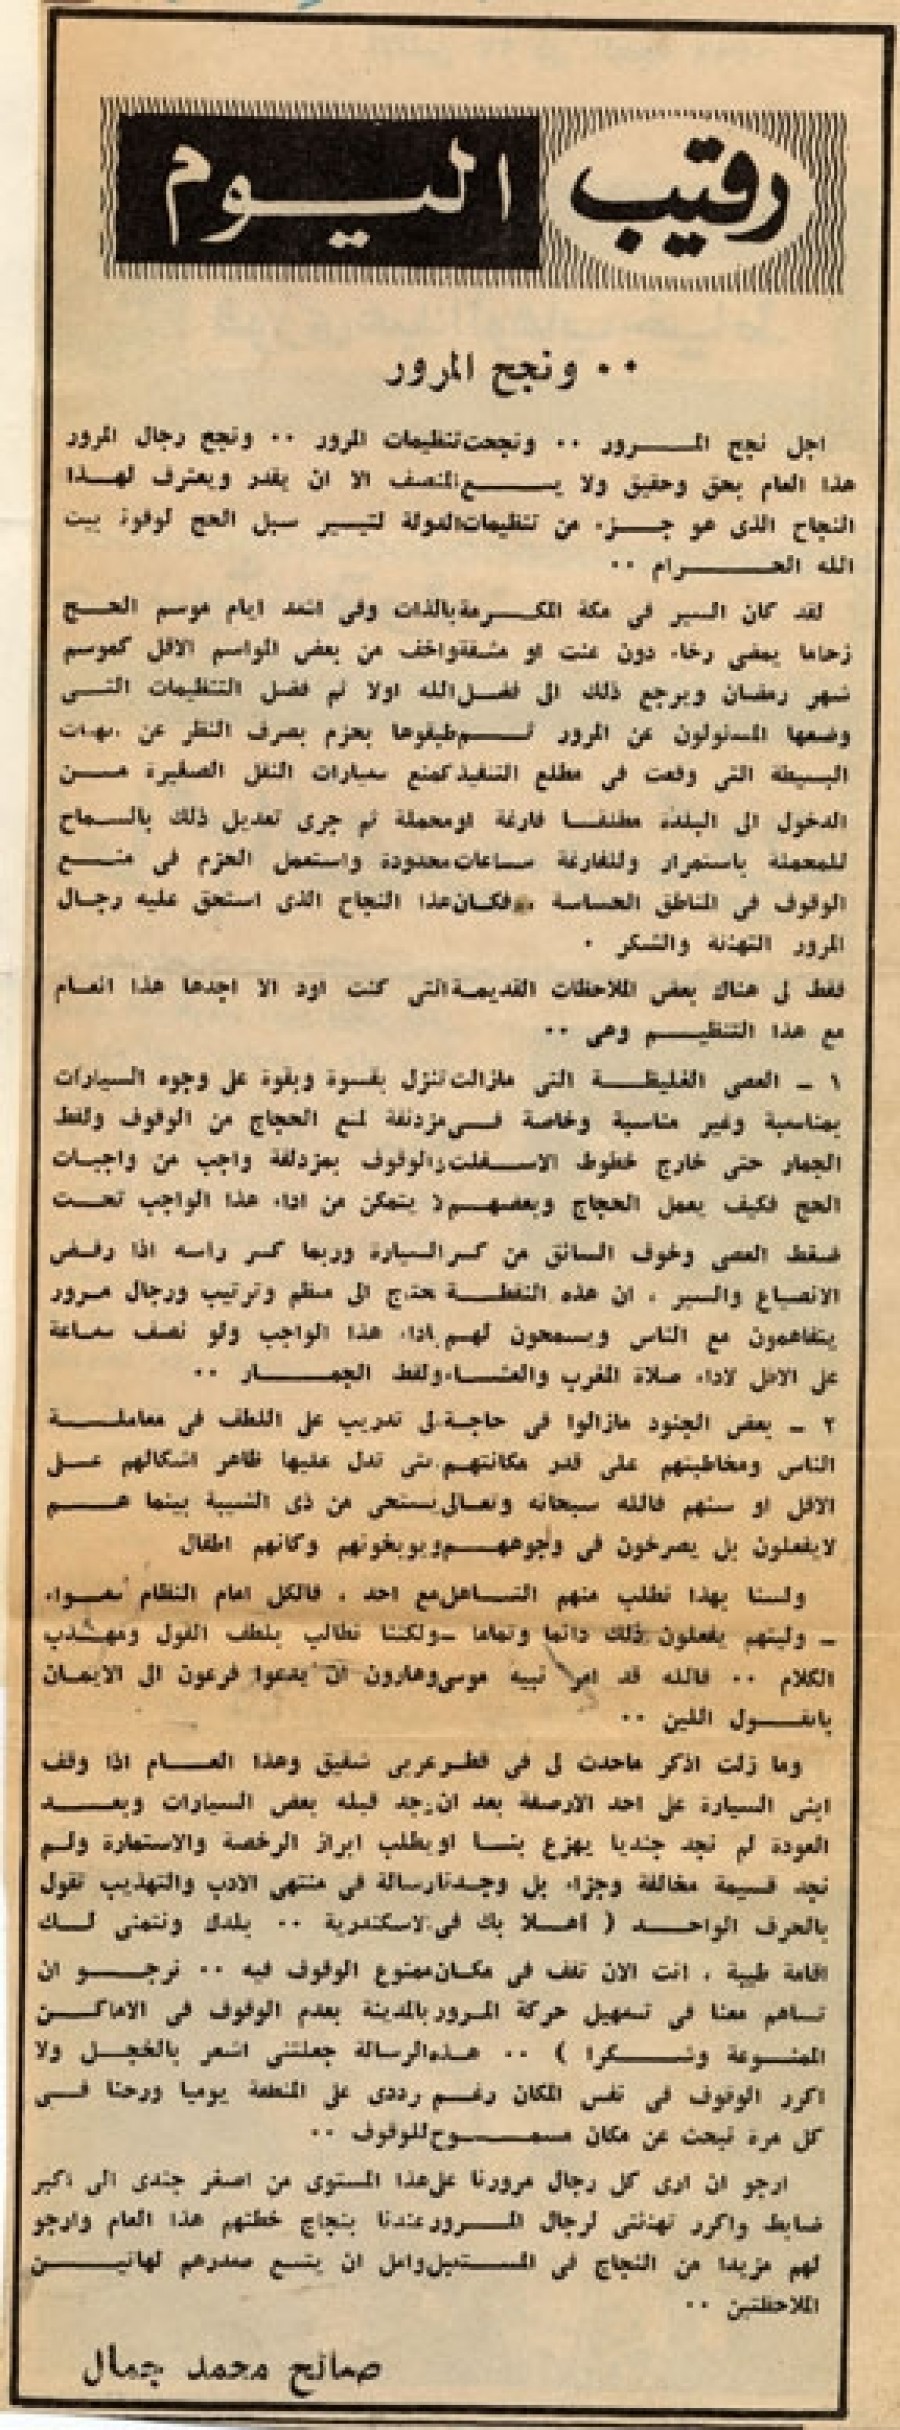 رقيب اليوم
٠٠ ونجح المرور
اجل نجح المرور ٠٠ ونجحت تنظيمات المرور ٠٠ ونجح رجال المرور
هذا العام بحق وحقيق ولا يسع المنصف الا ان يقدر ويعترف لهذا
النجاح الذى هو جزء من تنظيمات الدولة لتيسير سبل الحج لوفود بيت
الله الحرام ٠٠
لقد كان السير فى مكة المكرمة بالذات وفى اشد ايام موسم الحج
زحاما يمضى رخاء دون عنت او مشقة واخف من بعض المواسم الاقل كموسم
شهر رمضان ويرجع ذلك الى فضل الله اولا ثم فضل التنظيمات التى
وضعها المسئولون عن المرور ثم طبقوها بحزم بصرف النظر عن
البسيطة التى وقعت فى مطلع التنفيذ كمنع سيارات النقل الصغيرة من
الدخول الى البلدة مطلقا فارغة او محملة ثم جرى تعديل ذلك بالسماح
للمحملة باستمرار وللفارغة ساعات محدودة واستعمل الحزم فى منع
الوقوف فى المناطق الحساسة فكان هذا النجاح الذى استحق عليه رجال
المرور التهنئة والشكر ٠
فقط لى هناك بعض الملاحظات القديمة التى كنت اود الا اجدها هذا العام
مع هذا التنظيم وهى ٠٠
١ ـ العصى الغليظة التى مازالت تنزل بقسوة وبقوة على وجوه السيارات
بمناسبة وغير مناسبة وخاصة فى مزدلفة لمنع الحجاج من الوقوف ولقط
الجمار حتى خارج خطوط الاسفلت والوقوف بمزدلفة واجب من واجبات
الحج فكيف يعمل الحجاج وبعضهم لا يتمكن من اداء هذا الواجب تحت
ضغط العصى وخوف السائق من كسر السيارة وربما كسر راسه اذا رفض
الانصياع والسير ٠ ان هذه النقطة تحتاج الى منظم وترتيب ورجال مرور
يتفاهمون مع الناس ويسمحون لهم باداء هذا الواجب ولو نصف ساعة
على الاقل لاداء صلاة المغرب والعشاء ولقط الجمار ٠٠
٢ ـ بعض الجنود مازالوا فى حاجة الى تدريب على اللطف فى معاملة
الناس ومخاطبتهم على قدر مكانتهم التى تدل عليها ظاهر اشكالهم على
الاقل او سنهم فالله سبحانه وتعالى يستحى من ذى الشيبة بينما هم
لا يفعلون بل يصرخون فى وجوههم ويوبخونهم وكانهم اطفال
ولسنا بهذا نطلب منهم التساهل مع احد ٠ فالكل امام النظام سواء
ـ وليتهم يفعلون ذلك دائما وتماما ـ ولكننا نطالب بلطف القول ومهذب
الكلام ٠٠ فالله قد امر نبيه موسى وهارون ان يدعوا فرعون الى الايمان
بالقول اللين ٠٠
وما زلت اذكر ماحدث لى فى قطر عربى شقيق وهذا العام اذا وقف
ابنى السيارة على احد الارصفة بعد ان وجد قبله بعض السيارات وبعد
العودة لم نجد جنديا يهزع بنا او يطلب ابراز الرخصة والاستمارة ولم
نجد قسيمة مخالفة وجزاء بل وجدنا رسالة فى منتهى الادب والتهذيب تقول
بالحرف الواحد ( أهلا بك فى الاسكندرية ٠٠ بلدك ونتمنى لك
اقامة طيبة ٠ انت الان تقف فى مكان ممنوع الوقوف فيه ٠٠ نرجو ان
تساهم معنا فى تسهيل حركة المرور بالمدينة بعدم الوقوف فى الاماكن
الممنوعة وشكرا ) ٠٠ هذه الرسالة جعلتنى اشعر بالخجل ولا
اكرر الوقوف فى نفس المكان رغم ترددى على المنطقة يوميا ورحنا فى
كل مرة نبحث عن مكان مسموح للوقوف ٠٠
ارجو ان ارى كل رجال مرورنا على هذا المستوى من اصغر جندى الى اكبر
ضابط واكرر تهنئتى لرجال المرور عندنا بنجاح خطتهم هذا العام وارجو
لهم مزيدا من النجاح فى المستقبل وامل ان يتسع صدرهم لهاتين
الملاحظتين ٠٠
صالح محمد جمال